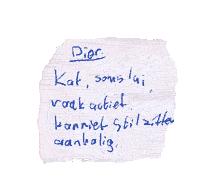 Dier.
Kat, soms lui,
vaak actief.
kan niet stil zitten
aanhalig.